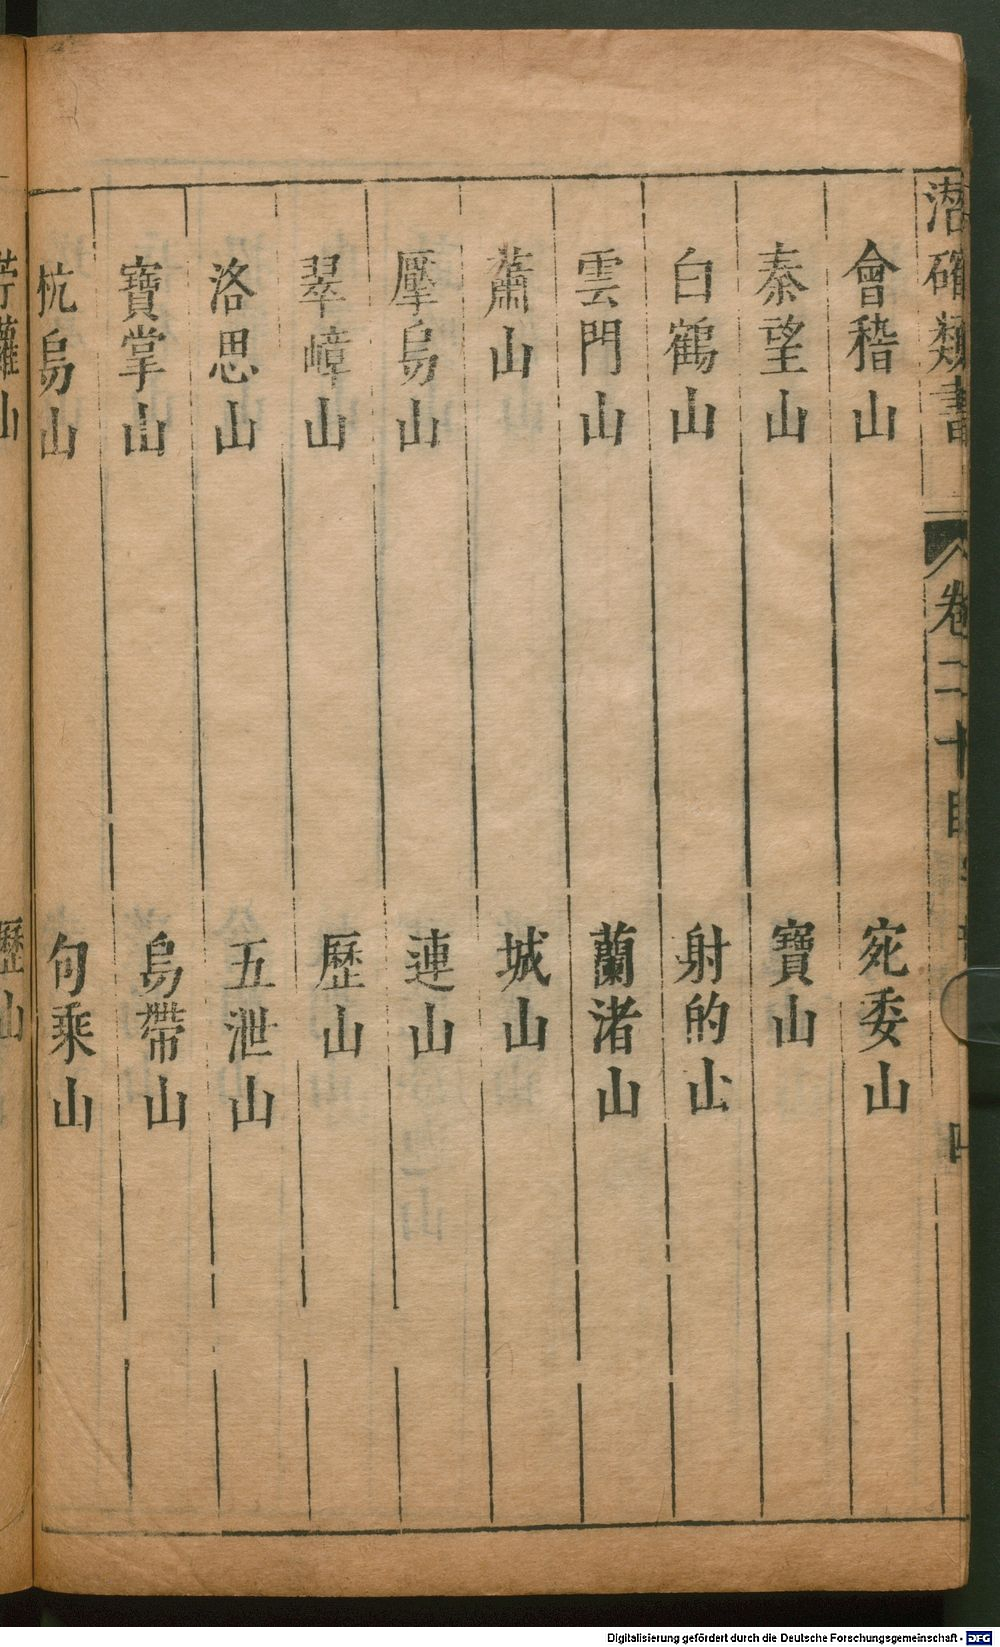 潛確類書 卷二十目 四
會稽山 宛委山
秦望山 寶山
白鶴山 射的山
雲門山 蘭渚山
蕭山 城山
壓烏山 連山
翠嶂山 歷山
洛思山 五泄山
寶掌山 烏帶山
杭烏山 句乘山
苧蘿山 歷山
Digitalisierung gefördert durch die Deutsche Forschungsgemeinschaft - DFG